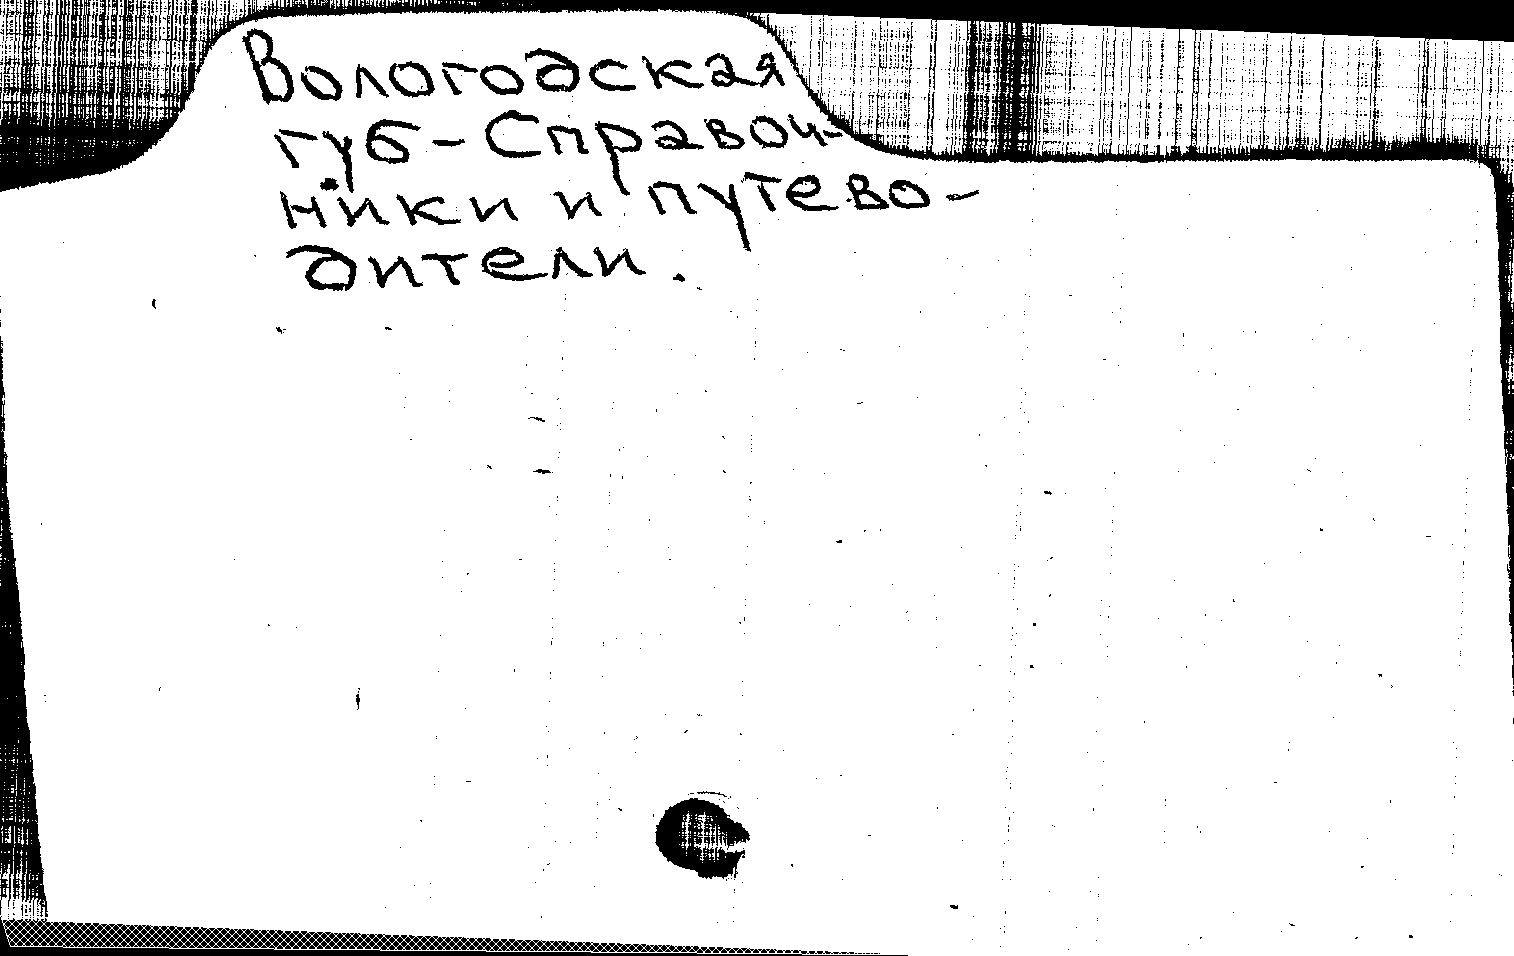 Вологодская
губ-Справоч-
ники и путево-
дители.